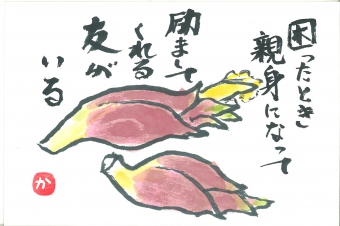 困ったとき
親身になって
励まして
くれる
友が
いる
か